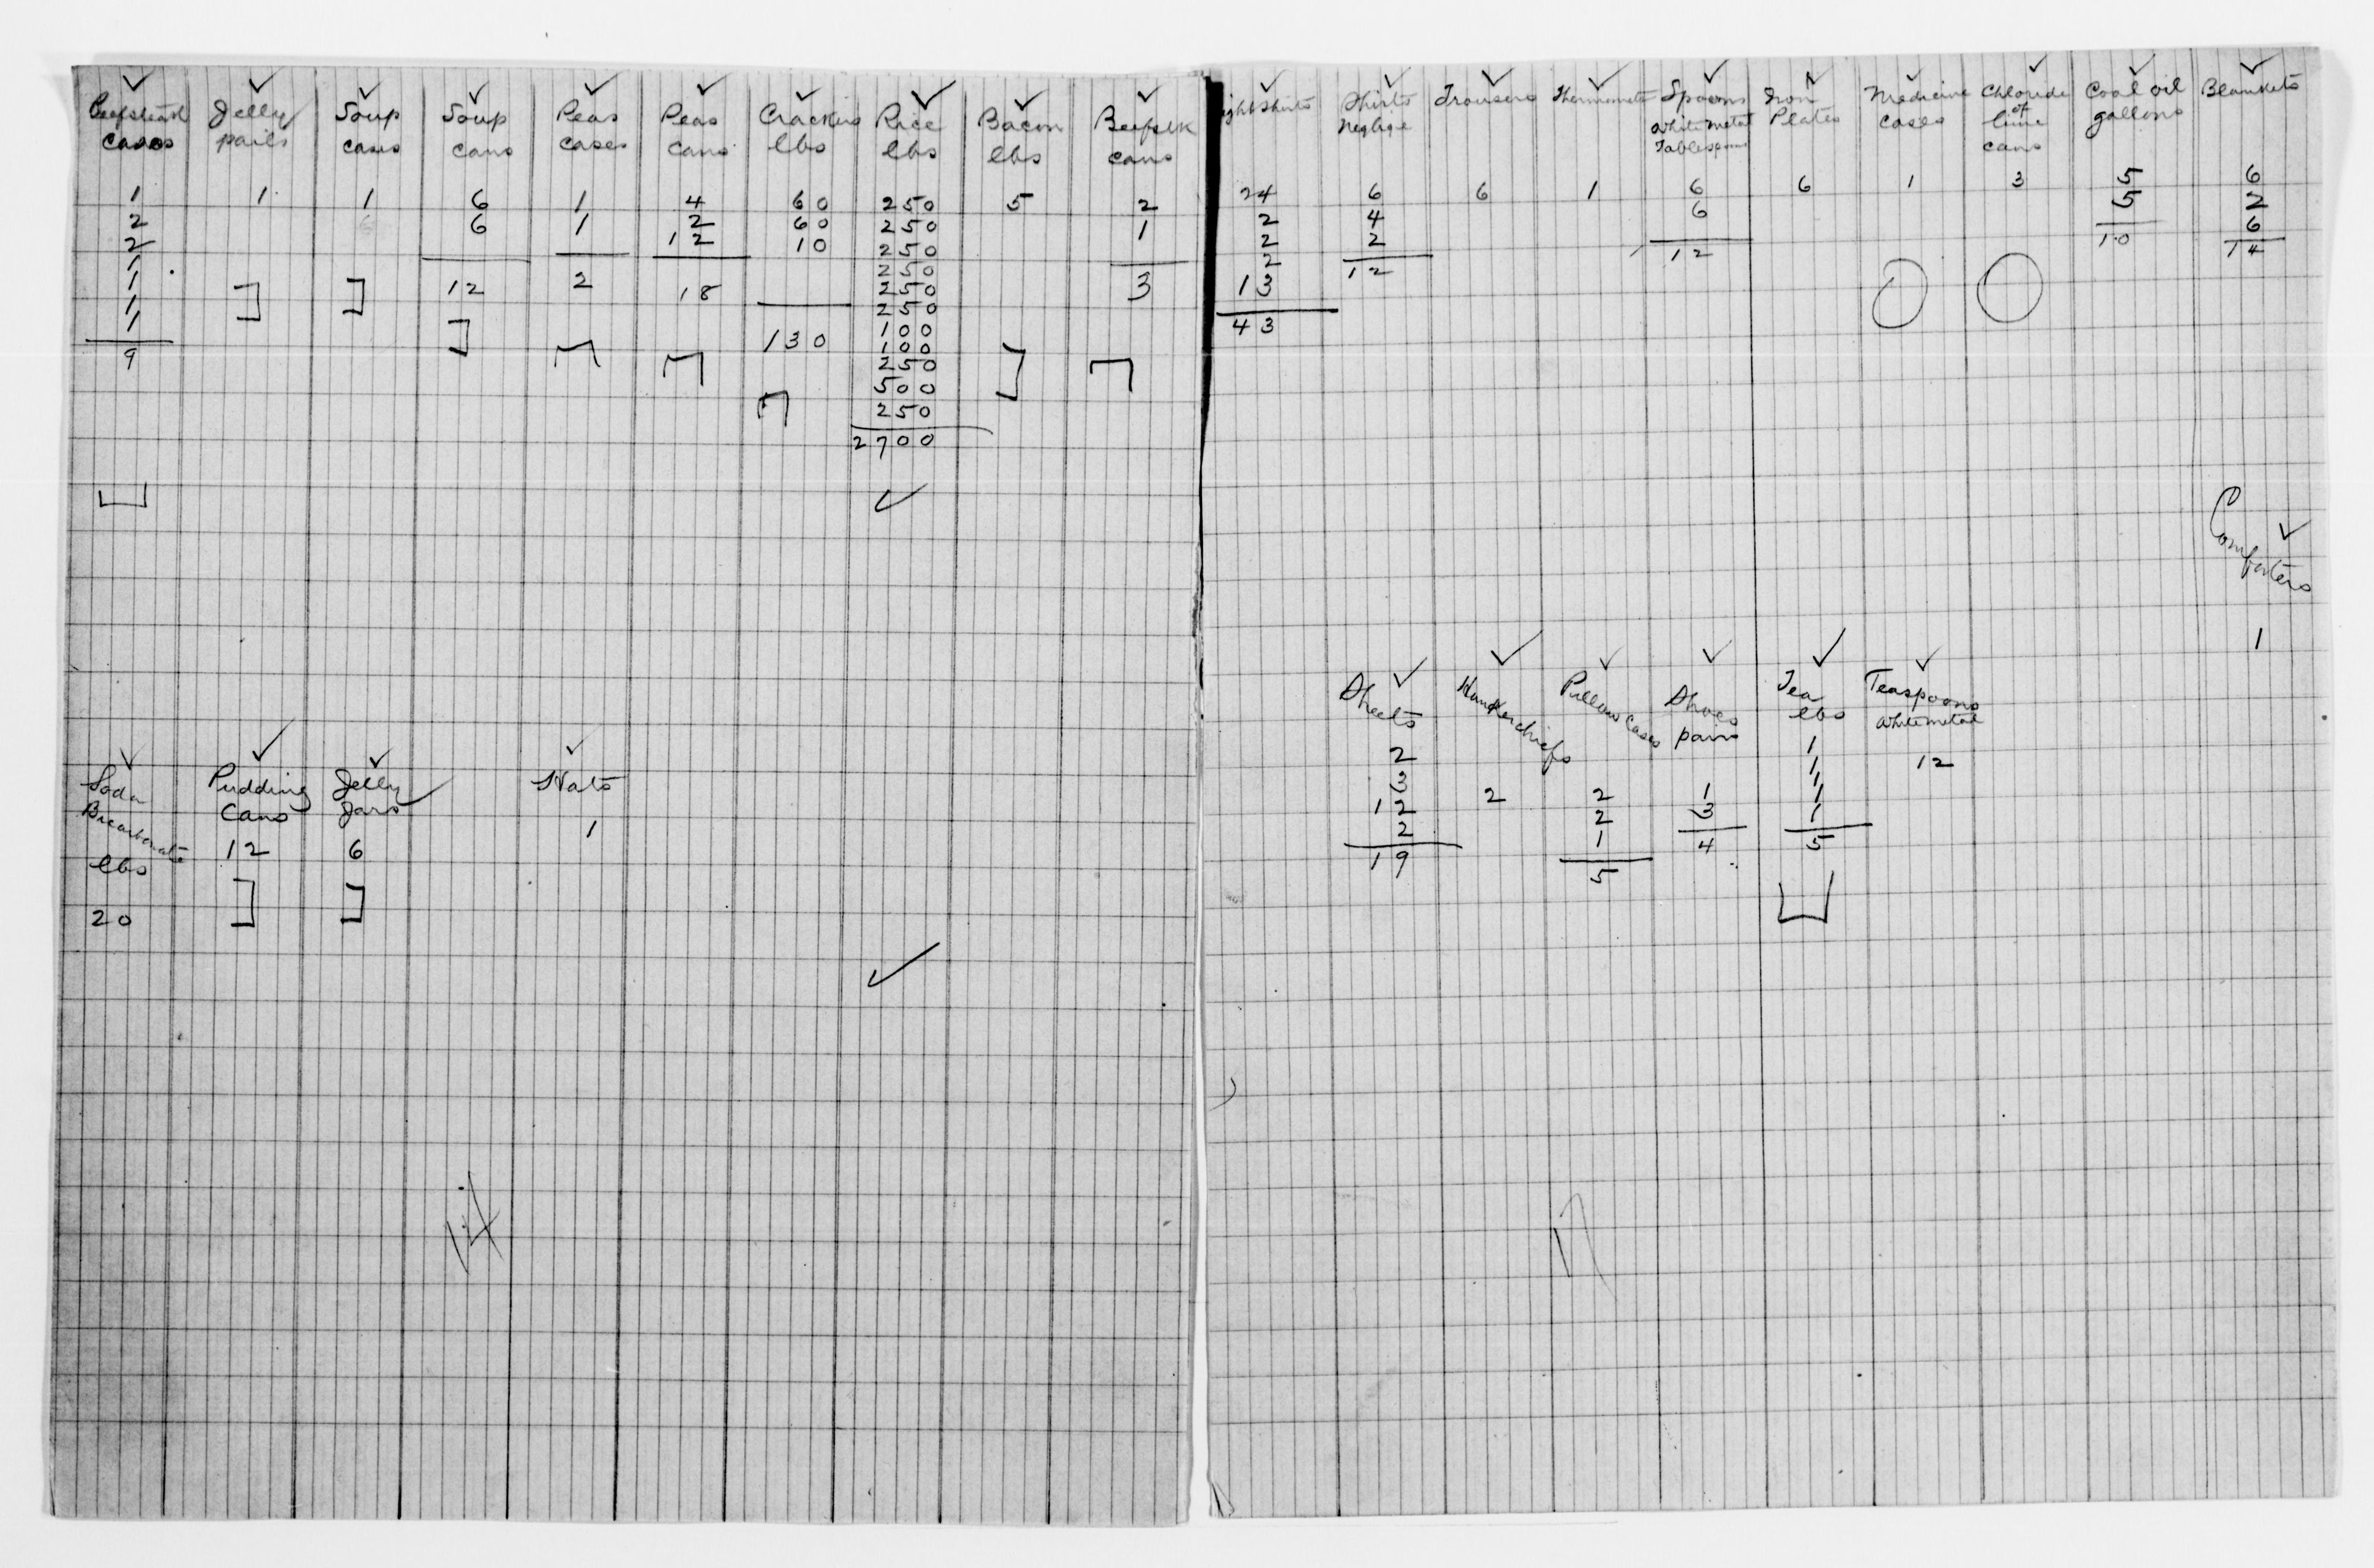 Beefsteak Jelly Soup Soup Peas Peas Crackers Rice Bacon Beefstk
cases pails cases cans cases cans lbs lbs lbs cans
1 1 1 6 1 4 60 250 5 2
2 6 1 2 60 250 1
2 12 10 250
1 250
1 12 2 18 250 3
1 250
1 130 100
9 100
250
500
250
2700
Soda Pudding Jelly Hats
Bicarbonate Cans Jars 1
lbs 12 6
20
14
Shirts Trousers Thermometer Spoons Iron Medicine Chloride Coal oil Blankets
Neglige White metal Plates cases of gallons
Tablespoons lime
cans
24 6 6 1 6 6 1 3 5 6
2 4 6 5 2
2 2 12 10 6
2 12 14
13
43
Comforters
1
Sheets Handkerchiefs Pillow Cases Shoes Tea Teaspoons
pairs lbs White metal
2 1 12
3 2 2 1 1
12 2 3 1
2 1 4 1
19 5 5
17